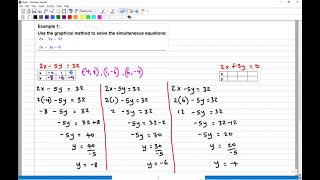 Example 1:
Use the graphical method to solve the simultaneous equations:
2x - 5y = 32
2x + 3y = 0
2x - 5y = 32
x -4 1 6
y -8 -6 -4
(-4, 8), (1, -6), (6, -4)
2x + 3y = 0
x
y
2x - 5y = 32 2x - 5y = 32 2x - 5y = 32
2(-4) - 5y = 32 2(1) - 5y = 32 2(6) - 5y = 32
-8 - 5y = 32 2 - 5y = 32 12 - 5y = 32
-5y = 32+8 -5y = 32-2 -5y = 32-12
-5y = 40 -5y = 30 -5y = 20
y = 40/-5 y = 30/-5 y = 20/-5
y = -8 y = -6 y = -4